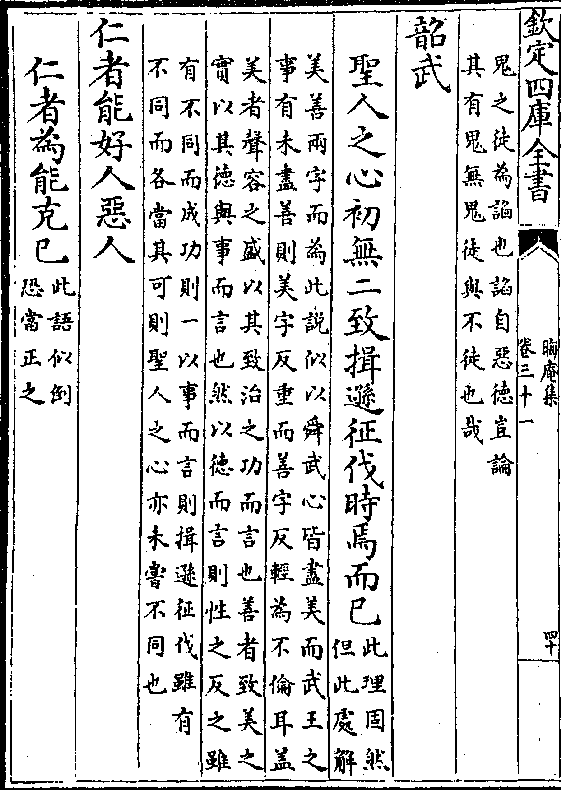 欽定四庫全書
晦庵集
卷三十一
四十
鬼之徒為諂也諂自惡德豈論
其有鬼無鬼徒與不徒也哉
韶武
聖人之心初無二致揖遜征伐時焉而已
此理固然
但此處解
美善兩字而為此說似以舜武心皆盡美而武王之
事有未盡善則美字反重而善字反輕為不倫耳蓋
美者聲容之盛以其致治之功而言也善者致美之
實以其德與事而言也然以德而言則性之反之雖
有不同而成功則一以事而言則揖遜征伐雖有
不同而各當其可則聖人之心亦未嘗不同也
仁者能好人惡人
仁者為能克已
此語似倒
恐當正之